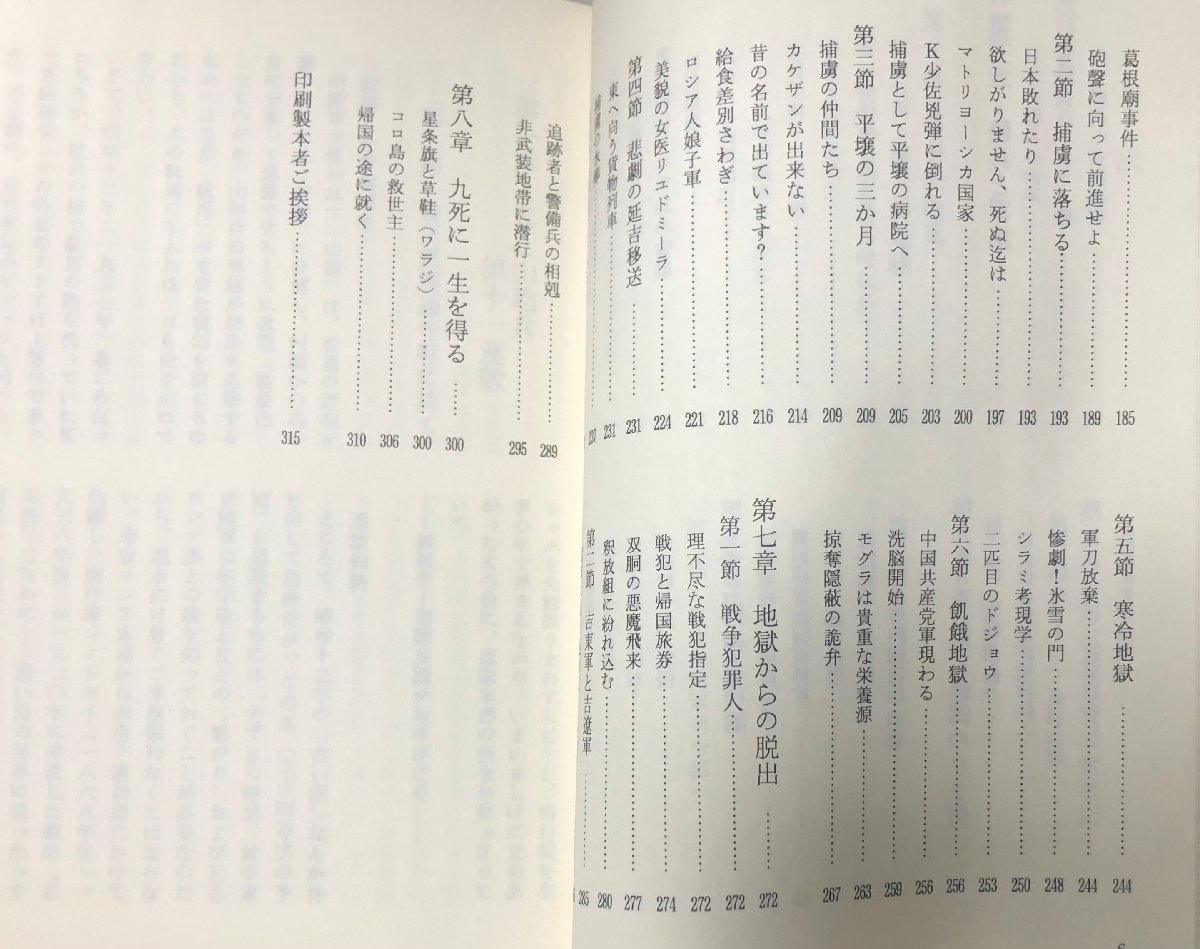 葛根廟事件 185
砲聲に向って前進せよ 189
第二節 捕虜に落ちる 193
日本敗れたり 193
欲しがりません、死ぬ迄は 197
マトリョーシカ国家 200
K少佐兇弾に倒れる 203
捕虜として平壌の病院へ 205
第三節 平壌の三か月 209
捕虜の仲間たち 209
カケザンが出来ない 214
昔の名前で出ています? 216
給食差別さわぎ 218
ロシア人娘子軍 221
美貌の女医リュドミーラ 224
第四節 悲劇の延吉移送 231
東へ向う貨物列車 231
237
第五節 寒冷地獄 244
軍刀放棄 244
惨劇!氷雪の門 248
シラミ考現学 250
二匹目のドジョウ 253
第六節 飢餓地獄 256
中国共産党軍現わる 256
洗脳開始 259
モグラは貴重な栄養源 263
掠奪隠蔽の詭弁 267
第七章 地獄からの脱出 272
第一節 戦争犯罪人 272
理不尽な戦犯指定 272
戦犯と帰国旅券 274
双胴の悪魔飛来 277
釈放組に紛れ込む 280
第二節 吉東軍と吉遼軍 285
6
追跡者と警備兵の相剋 289
非武装地帯に潜行 295
第八章 九死に一生を得る 300
星条旗と草鞋(ワラジ) 300
コロ島の救世主 306
帰国の途に就く 310
印刷製本者ご挨拶 315